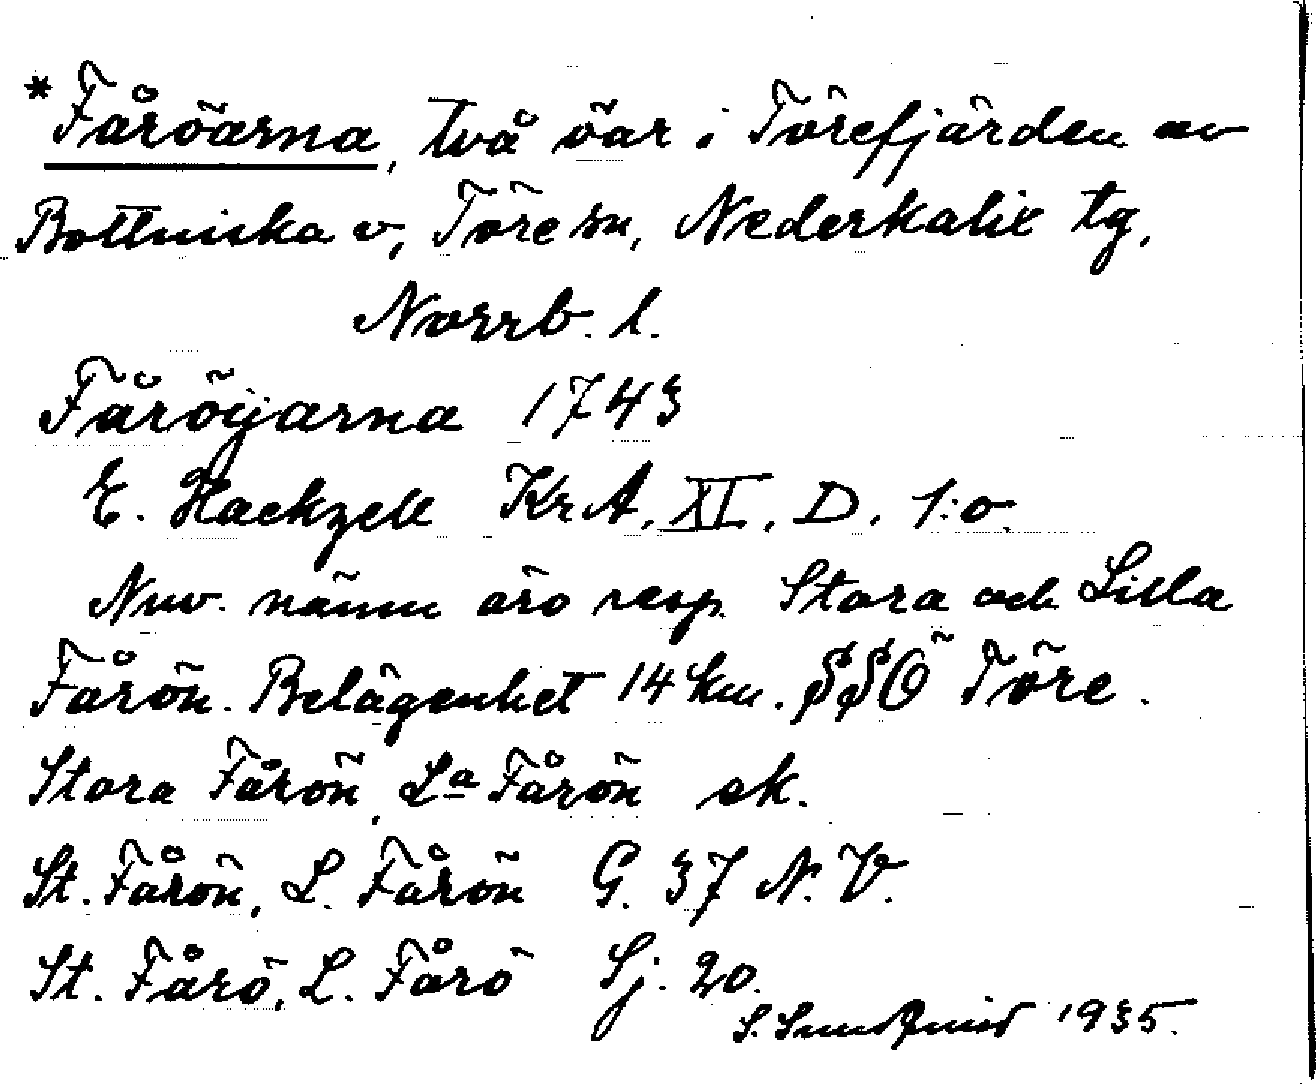 *Fåröarna, två öar i Törefjärden av
Bottniska v, Töre sn, Nederkalix tg,
Norrb. l.
Fåröijarna 1743
E. Hackzell KrA, XI, D. 1:o.
Nuv. namn äro resp. Stora och Lilla
Fårön. Belägenhet 14 km. SSÖ Töre.
Stora Fårön, La Fårön ek.
St. Fårön, L. Fårön G. 37 N.V.
St. Fårö, L. Fårö Sj. 20.
S. 1935.